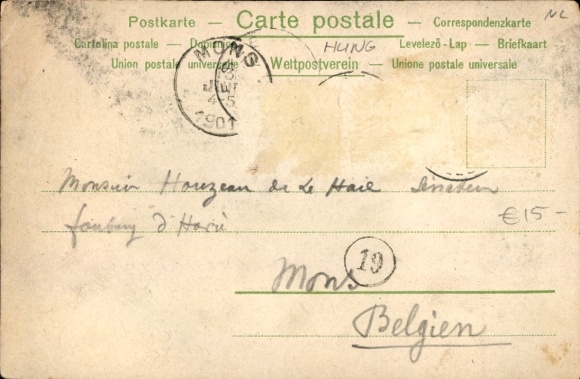 Postkarte — Carte postale — Correspondenzkarte
NL
Cartolina postale — Dopisnice — Levelező-Lap — Briefkaart
HUNG
Union postale universelle Weltpostverein — Unione postale universale
MONS
1901
Monsieur Houzeau de Le Haie
faubourg d'Havré
€15-
19
Mons
Belgien